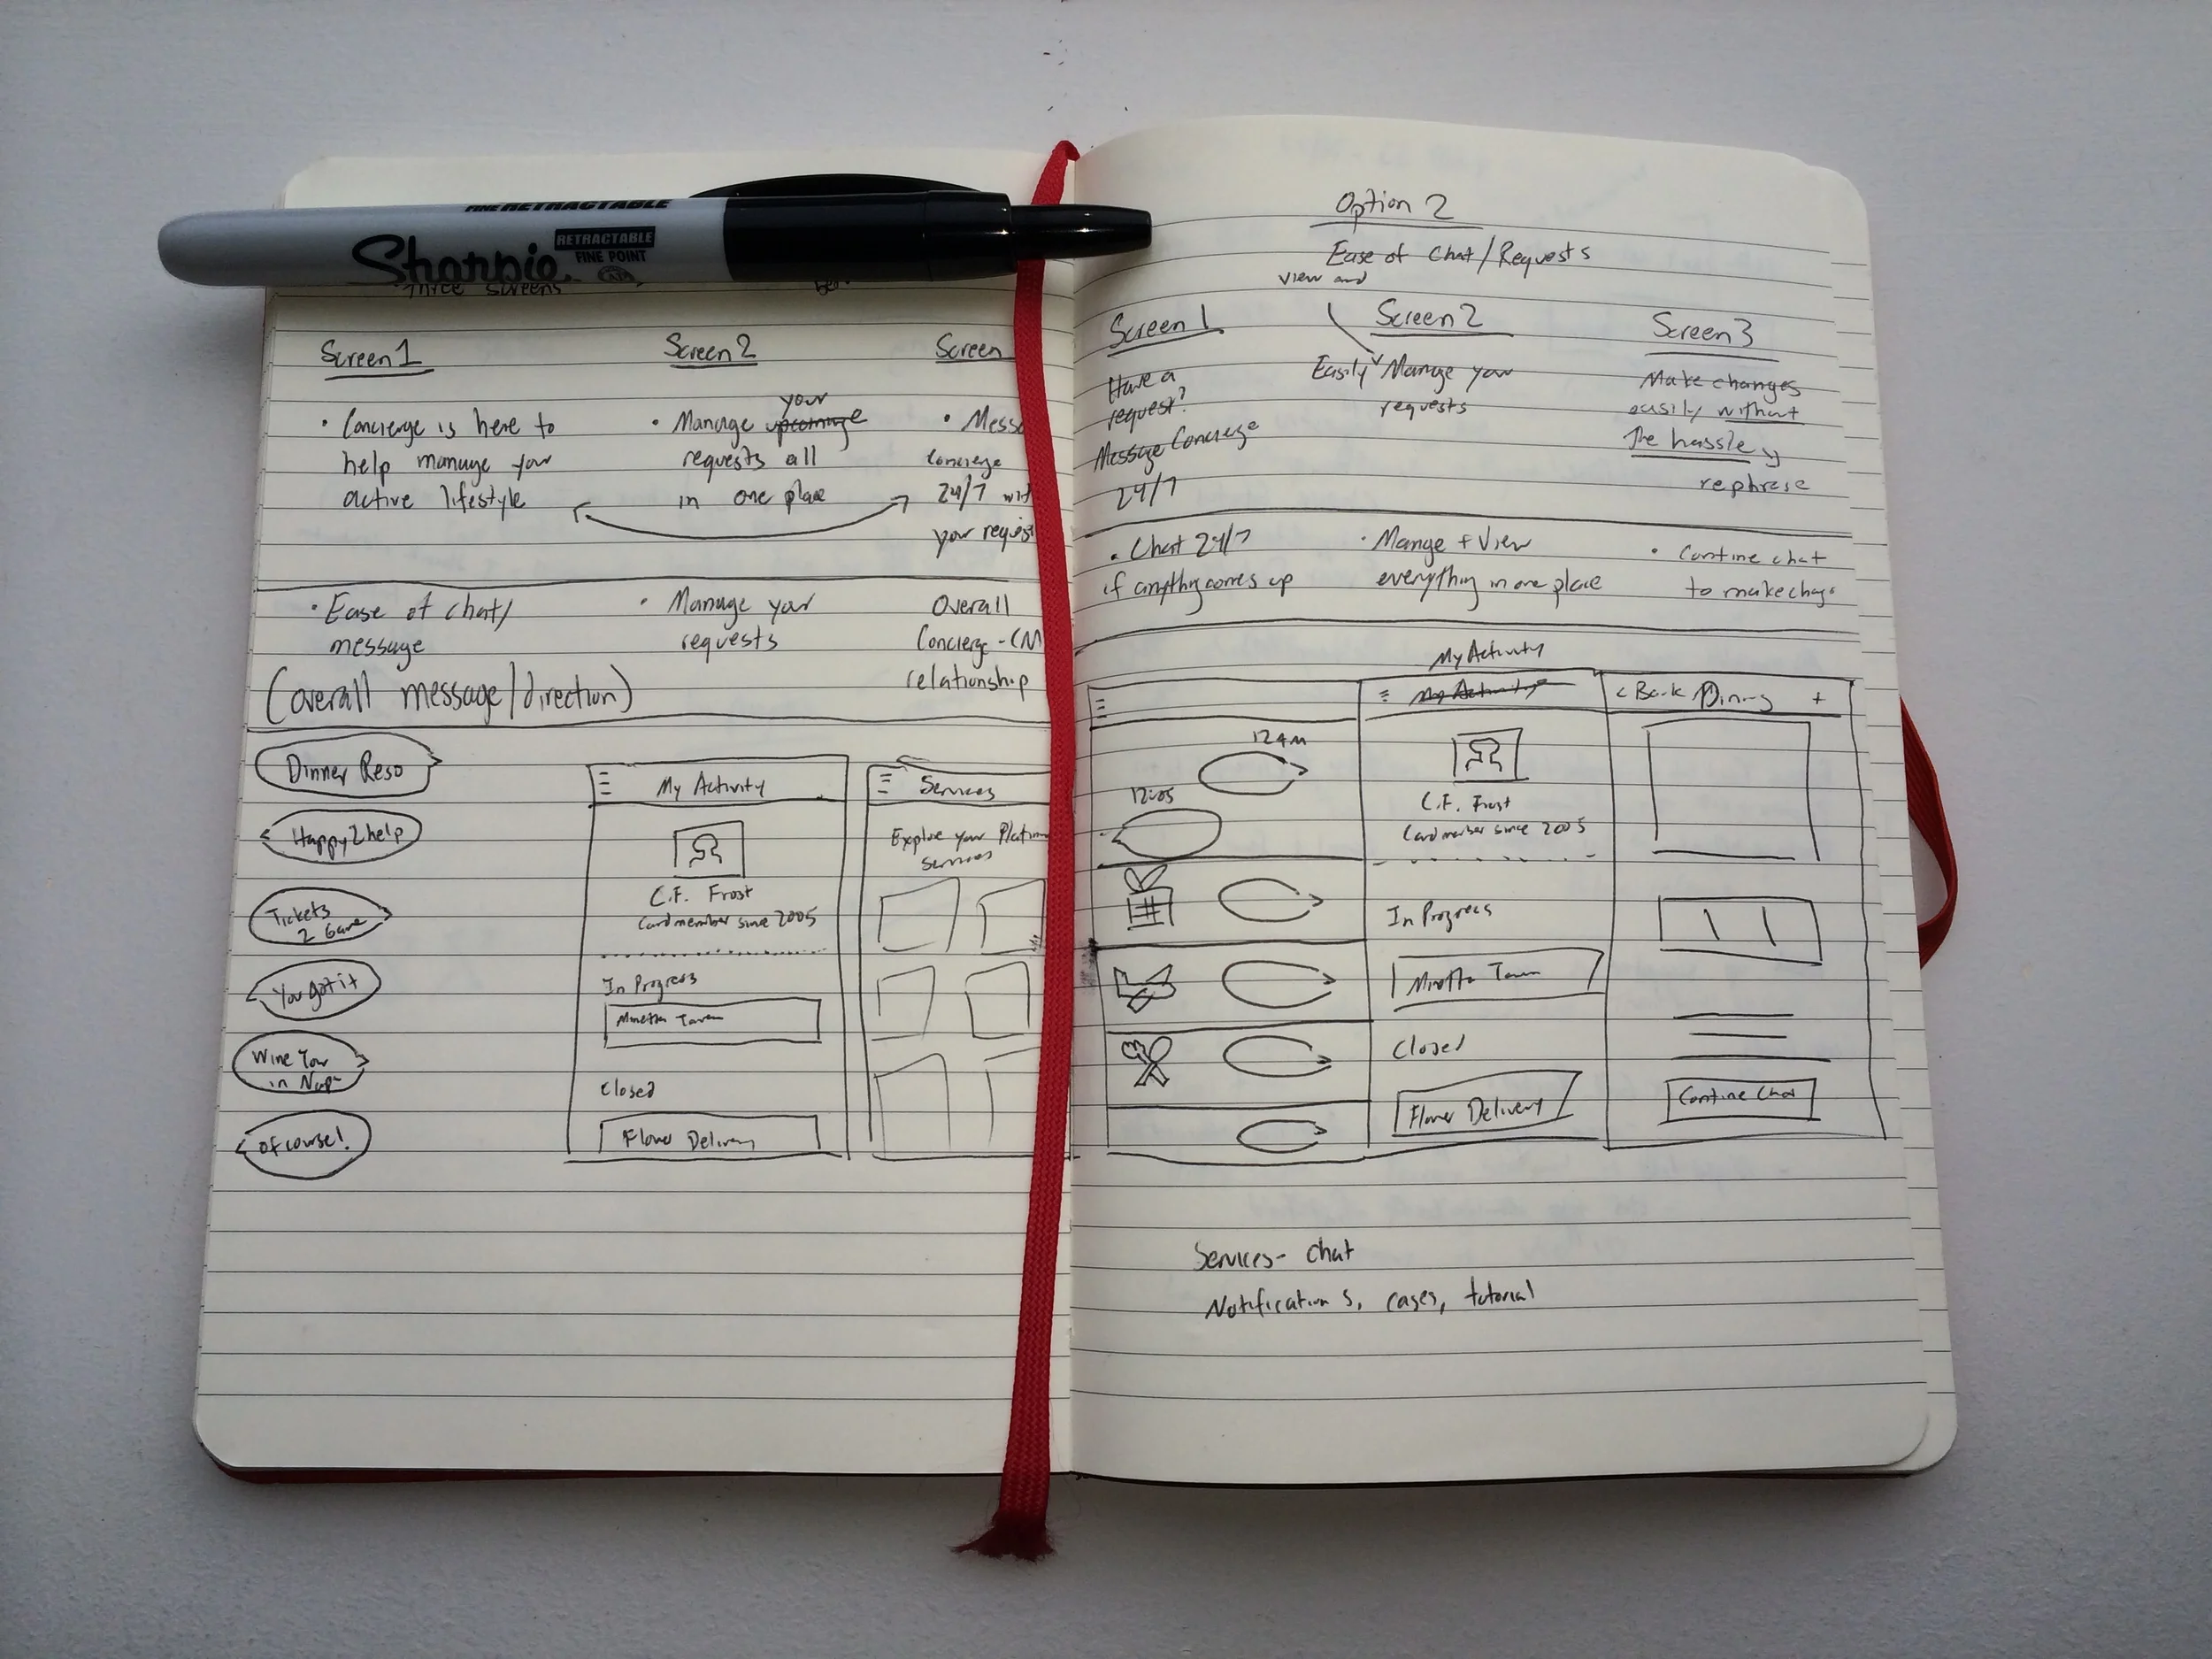 FINE RETRACTABLE
Sharpie
RETRACTABLE
FINE POINT
Three screens
Screen 1
Screen 2
Screen
• Concierge is here to
help manage your
active lifestyle
your
• Manage upcoming
requests all
in one place
• Messa
Concierge
24/7 wit
your reques
• Ease of chat/
message
• Manage your
requests
Overall
Concierge - CM
relationship
(overall message/direction)
Dinner Reso
Happy 2 help
Tickets
2 Game
You got it
Wine Tour
in Napa
Of course!
My Activity
C.F. Frost
Cardmember since 2005
In Progress
Minetta Tavern
Closed
Flower Delivery
Services
Explore your Platinum
services
Option 2
Ease of Chat/Requests
view and
Screen 1
Have a
request?
Message Concierge
24/7
Screen 2
Easily Manage your
requests
Screen 3
Make changes
easily without
the hassle
rephrase
• Chat 24/7
if anything comes up
• Mange + View
everything in one place
• Contine chat
to make chags
My Activity
12 AM
12:05
My Activity
C.F. Frost
Cardmember since 2005
In Progress
Minetta Tavern
Closed
Flower Delivery
< Back Dining +
Contine Chat
Services - chat
Notifications, cases, tutorial